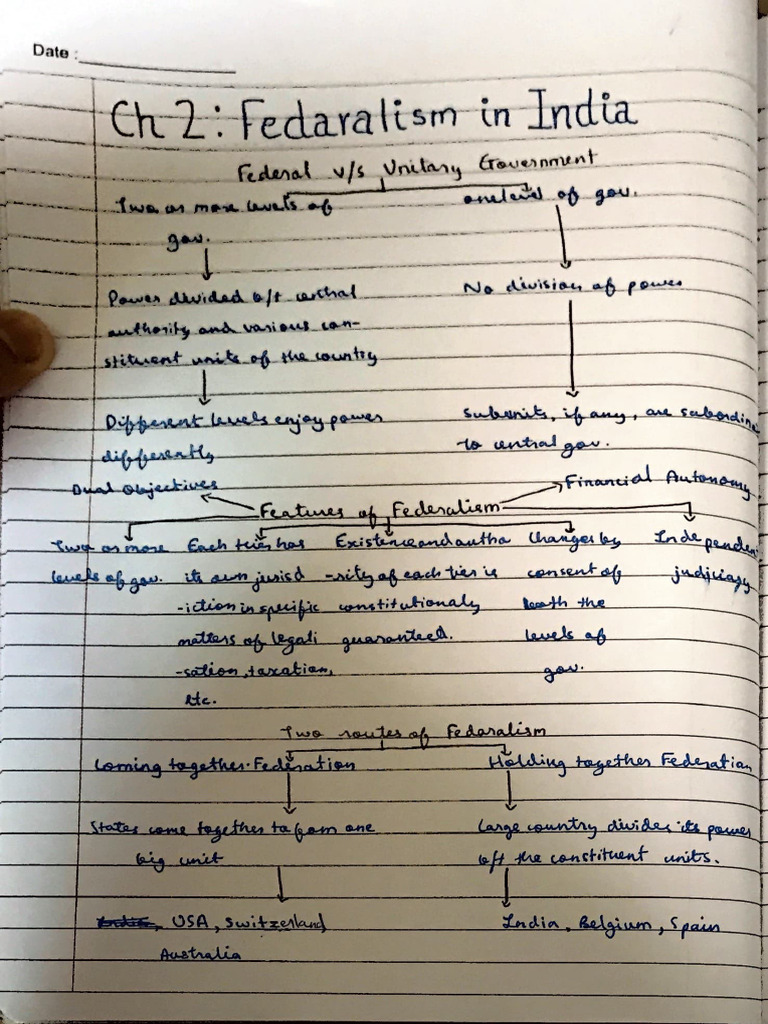 Date :
Ch 2 : Fedaralism in India
Federal v/s Unitary Government
Two or more levels of
gov.
one level of gov.
Power divided b/t central
authority and various con-
stituent units of the country
No division of power
Different levels enjoy power
differently
Subunits, if any, are subordine
to central gov.
Dual Objectives
Financial Autonomy
Features of Federalism
Two or more
levels of gov.
Each tier has
its own jurisd
-iction in specific
matters of legali
-sation, taxation,
etc.
Existence and autho
-rity of each tier is
constitutionaly
guaranteed.
Changes by
consent of
both the
levels of
gov.
Independen
judiciary
Two routes of Fedaralism
Coming together Federation
Holding together Federation
States come together to form one
big unit
Large country divides its power
b/t the constituent units.
USA, Switzerland
Australia
India, Belgium, Spain